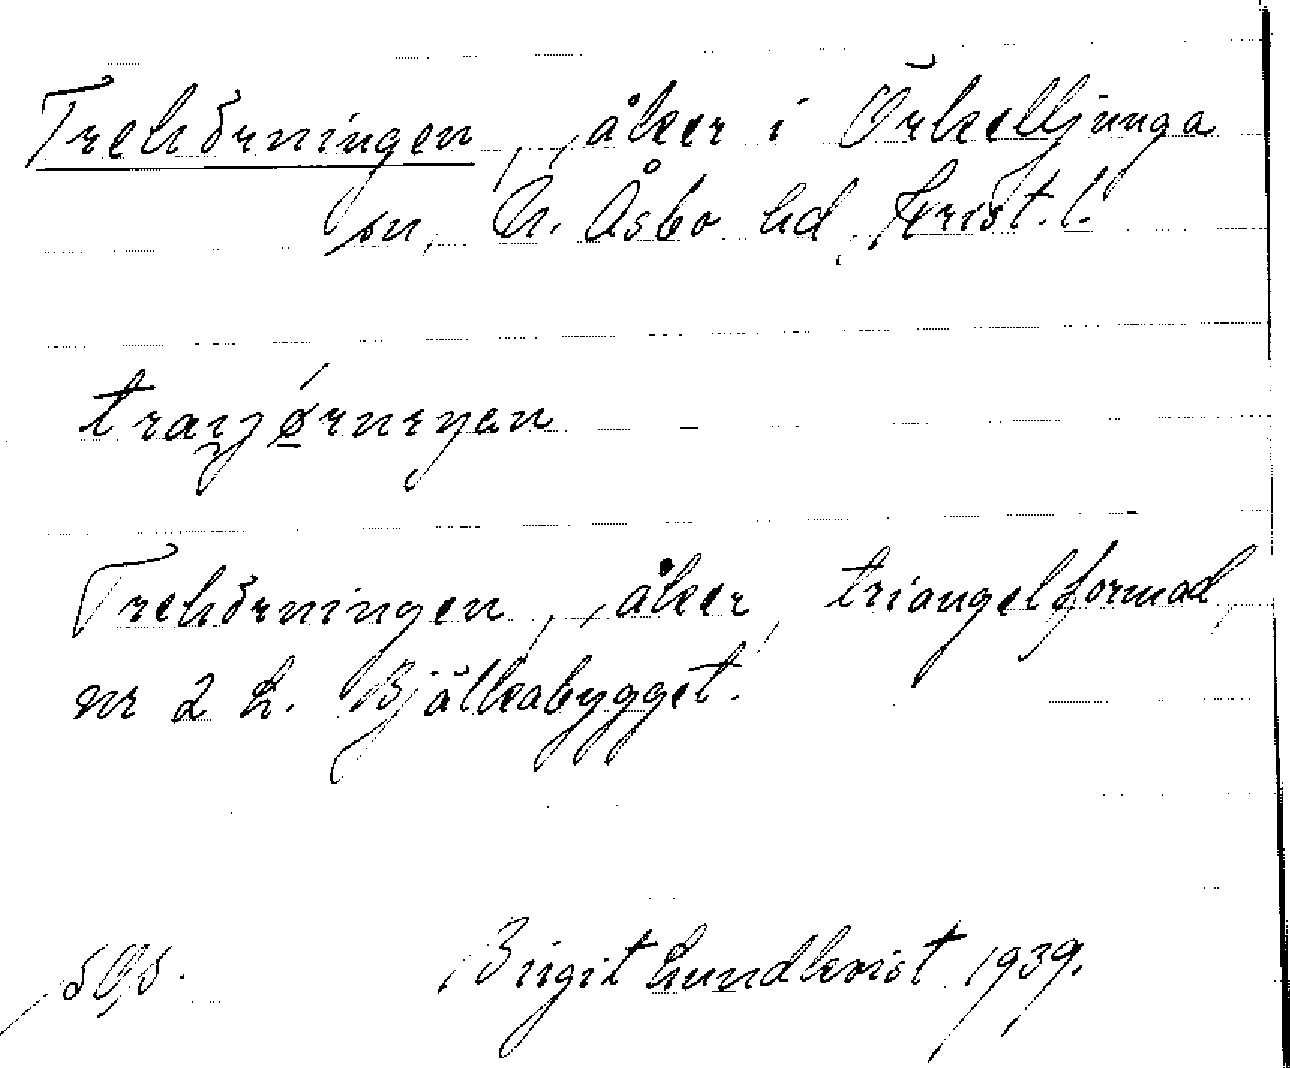 Trehörningen, åker i Örkelljunga
sn, N. Åsbo hd, Krist. l.
Trehörningen, åker, triangelformad,
nr 2 L. Bjälkabygget.
Birgit Lundkvist 1939.